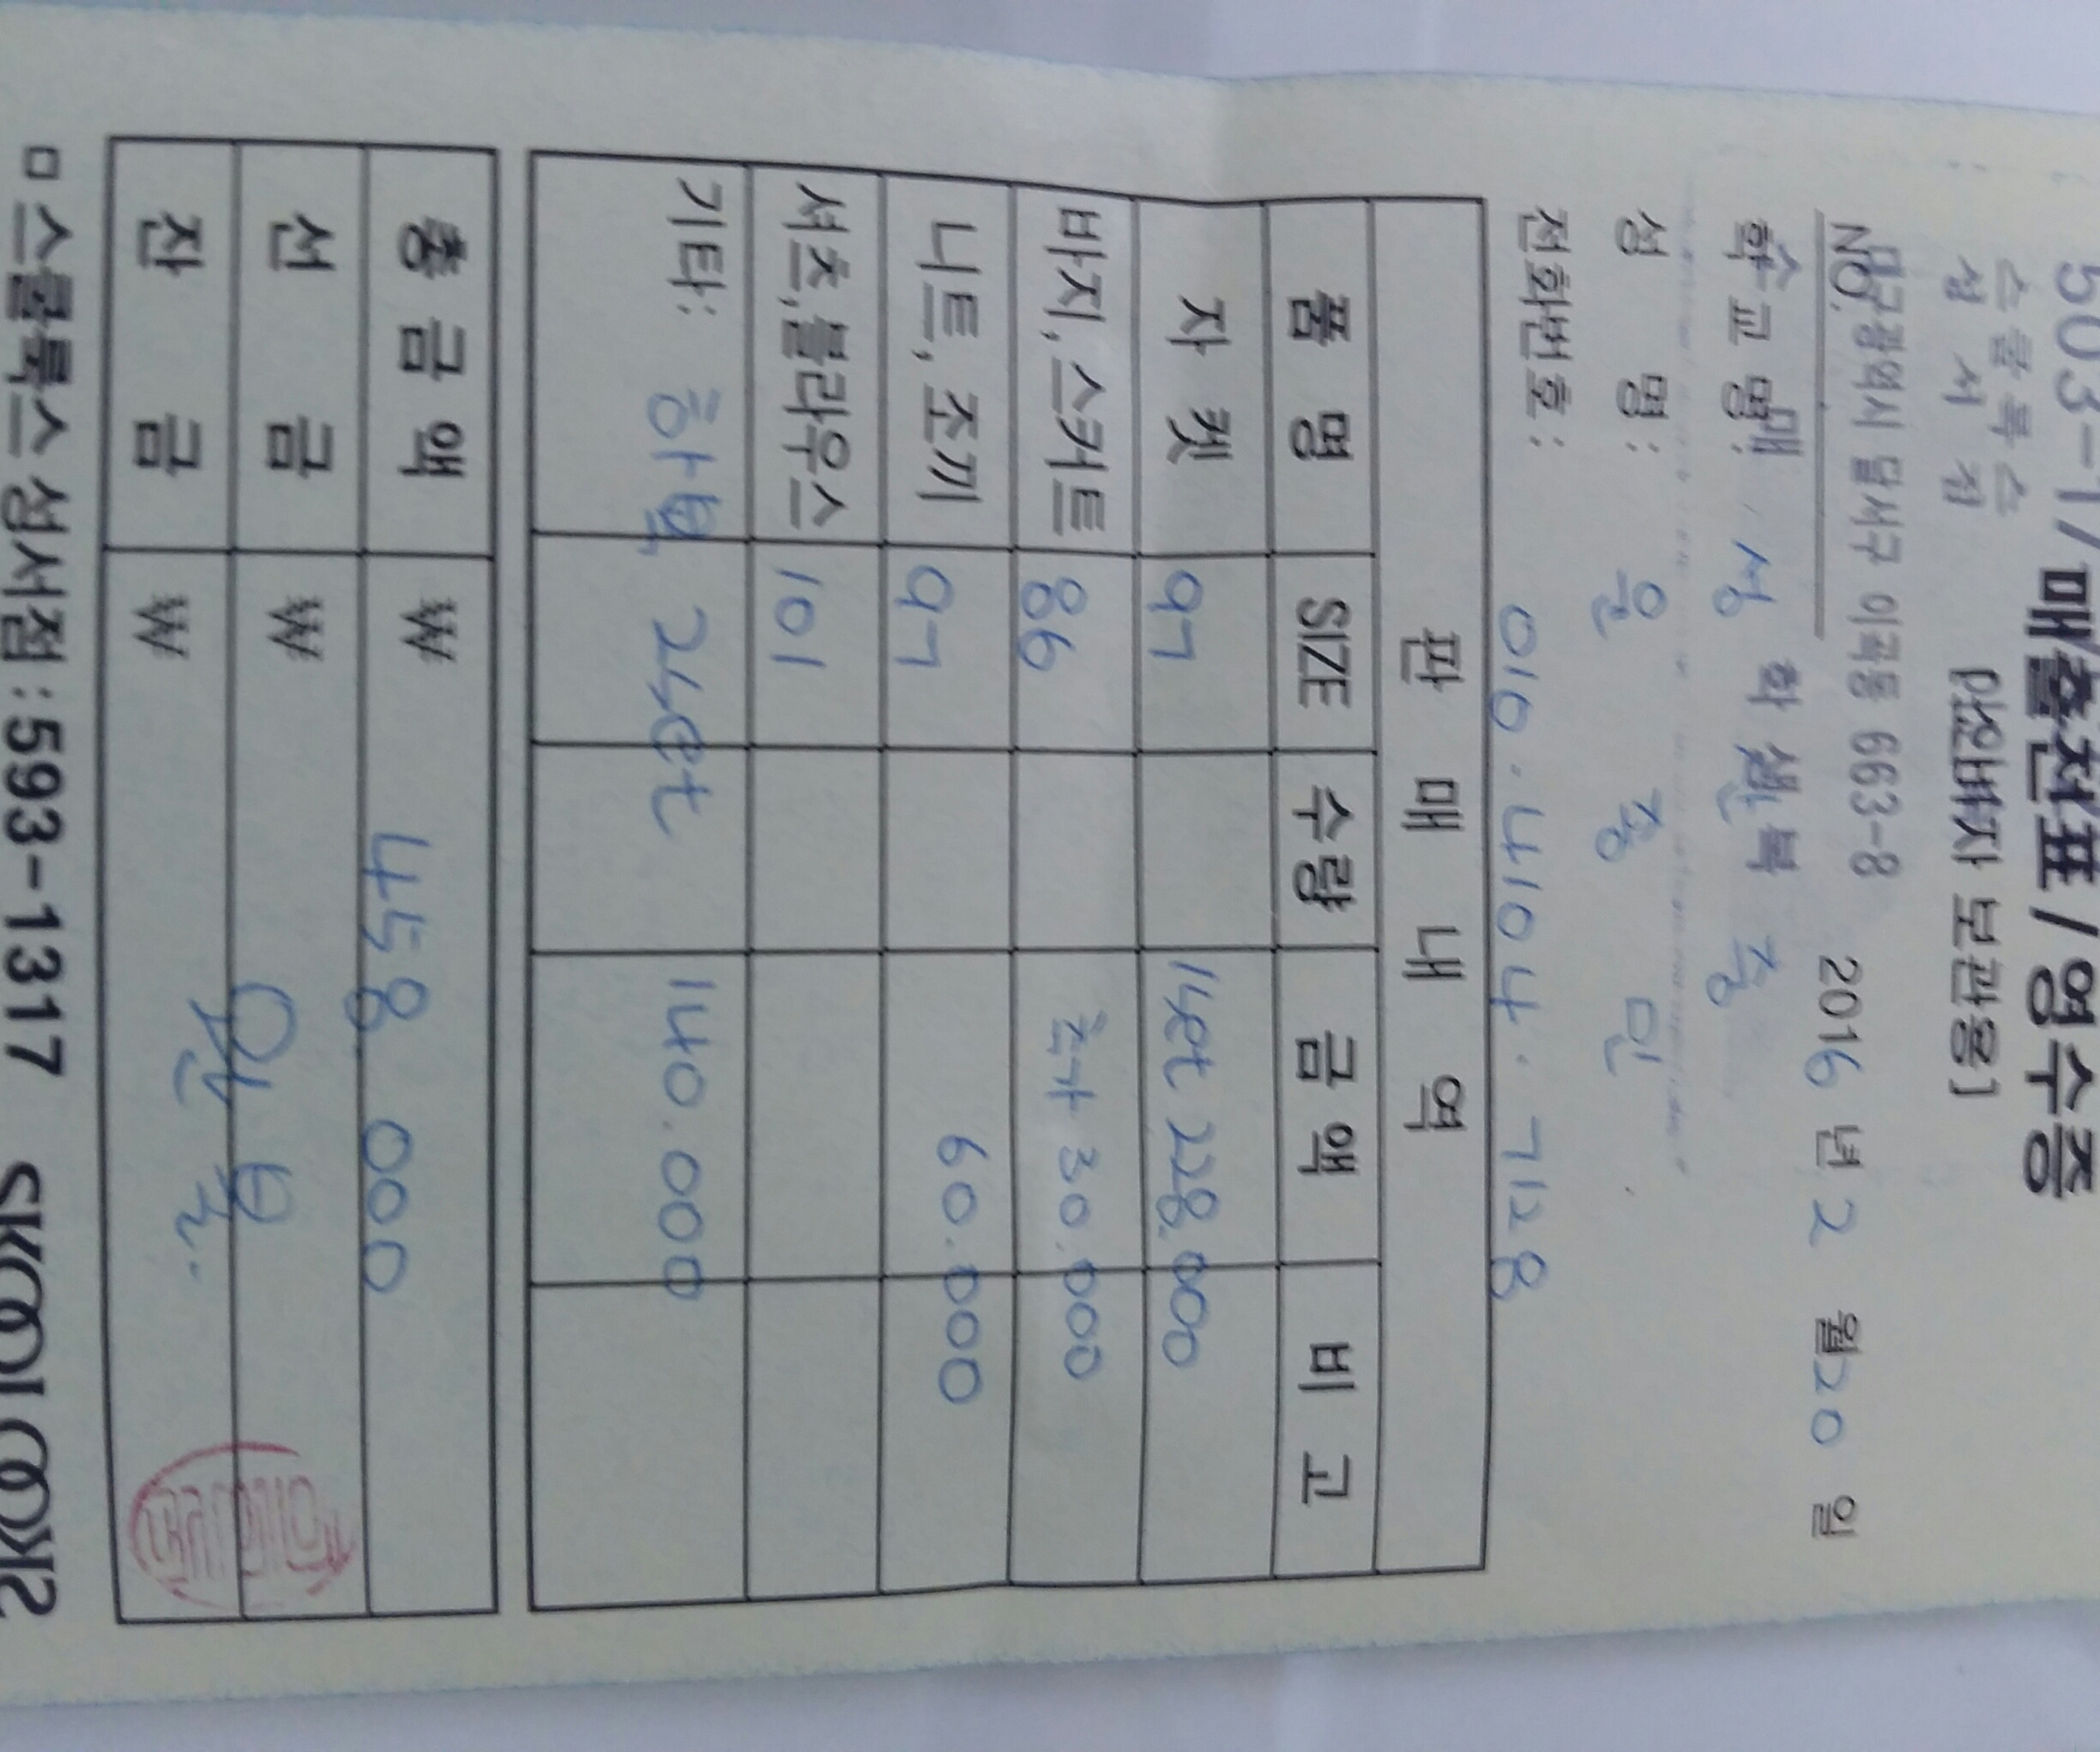 503-1
매출전표 / 영수증
스쿨룩스
[소비자 보관용]
NO.
대구광역시 달서구 이곡동 663-8
2016년 2월 20일
학교명:
학생복
성명: 윤 종 민
전화번호: 010. 4104. 7128
판매내역
품명 SIZE 수량 금액 비고
자켓 97 1set 228.000
바지, 스커트 86 추가 30.000
니트, 조끼 97 60.000
셔츠, 블라우스 101
기타: 하복 2set 140.000
총금액 ₩ 458 000
선금 ₩
잔금 ₩
완불
ㅁ스쿨룩스 성서점 : 593-1317